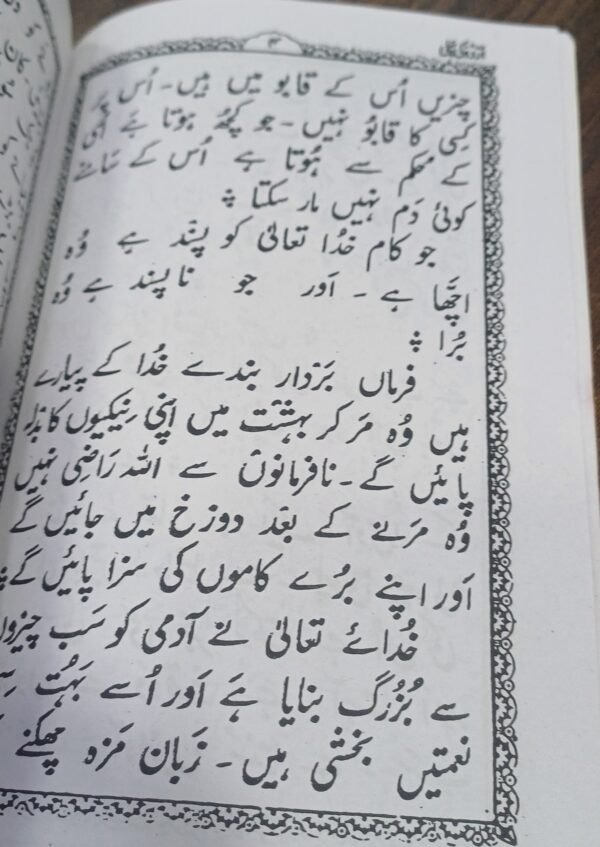 ۳
چیزیں اُس کے قابو میں ہیں۔ اُس پر
کِسی کا قابُو نہیں۔ جو کچُھ ہوتا ہَے اُسی
کے حُکم سے ہُوتا ہے اُس کے سَامنے
کوئی دَم نہیں مار سکتا ؞
جو کام خُدا تعالیٰ کو پسَند ہے وُہ
اچھّا ہے ۔ اَور جو ناپسند ہے وُہ
بُرا ؞
فرماں بَردار بندے خُدا کے پیارے
ہیں وُہ مَر کر بہشت میں اپنی نیکیوں کا بدلہ
پائیں گے۔ نافرمانوں سے اللہ رَاضی نہیں
وُہ مَرنے کے بعَد دوزخ میں جائیں گے
اَور اپنے بُرے کاموں کی سزا پائیں گے ؞
خُدائے تعالیٰ نے آدمی کو سَب چیزوں
سے بُزرگ بنایا ہَے اَور اُسے بَہُت سِی
نعمتیں بخشی ہیں۔ زَبان مَزہ چکھنے